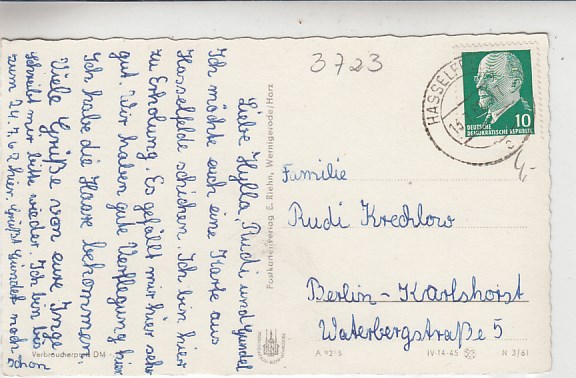 Liebe Hylla, Rudi und Gundel
Ich möchte euch eine Karte aus
Hasselfelde schicken. Ich bin hier
zu Erholung. Es gefällt mir hier sehr
gut. Wir haben gute Verflegung hier
Ich habe die Hasse bekommen.
Viele Grüße von eure Inge
schreibt mir bitte wieder. Ich bin bis
zum 24.7.62 hier. Grüßt Gundel noch
Verbraucherpreis DM
Postkarten-Verlag E. Riehn, Wernigerode/Harz
3723
HASSELF
DEUTSCHE
DEMOKRATISCHE REPUBLIK
10
Familie
Rudi Krechlow
Berlin-Karlshorst
Waterbergstraße 5
A 92/5 IV-14-45 N 3/61